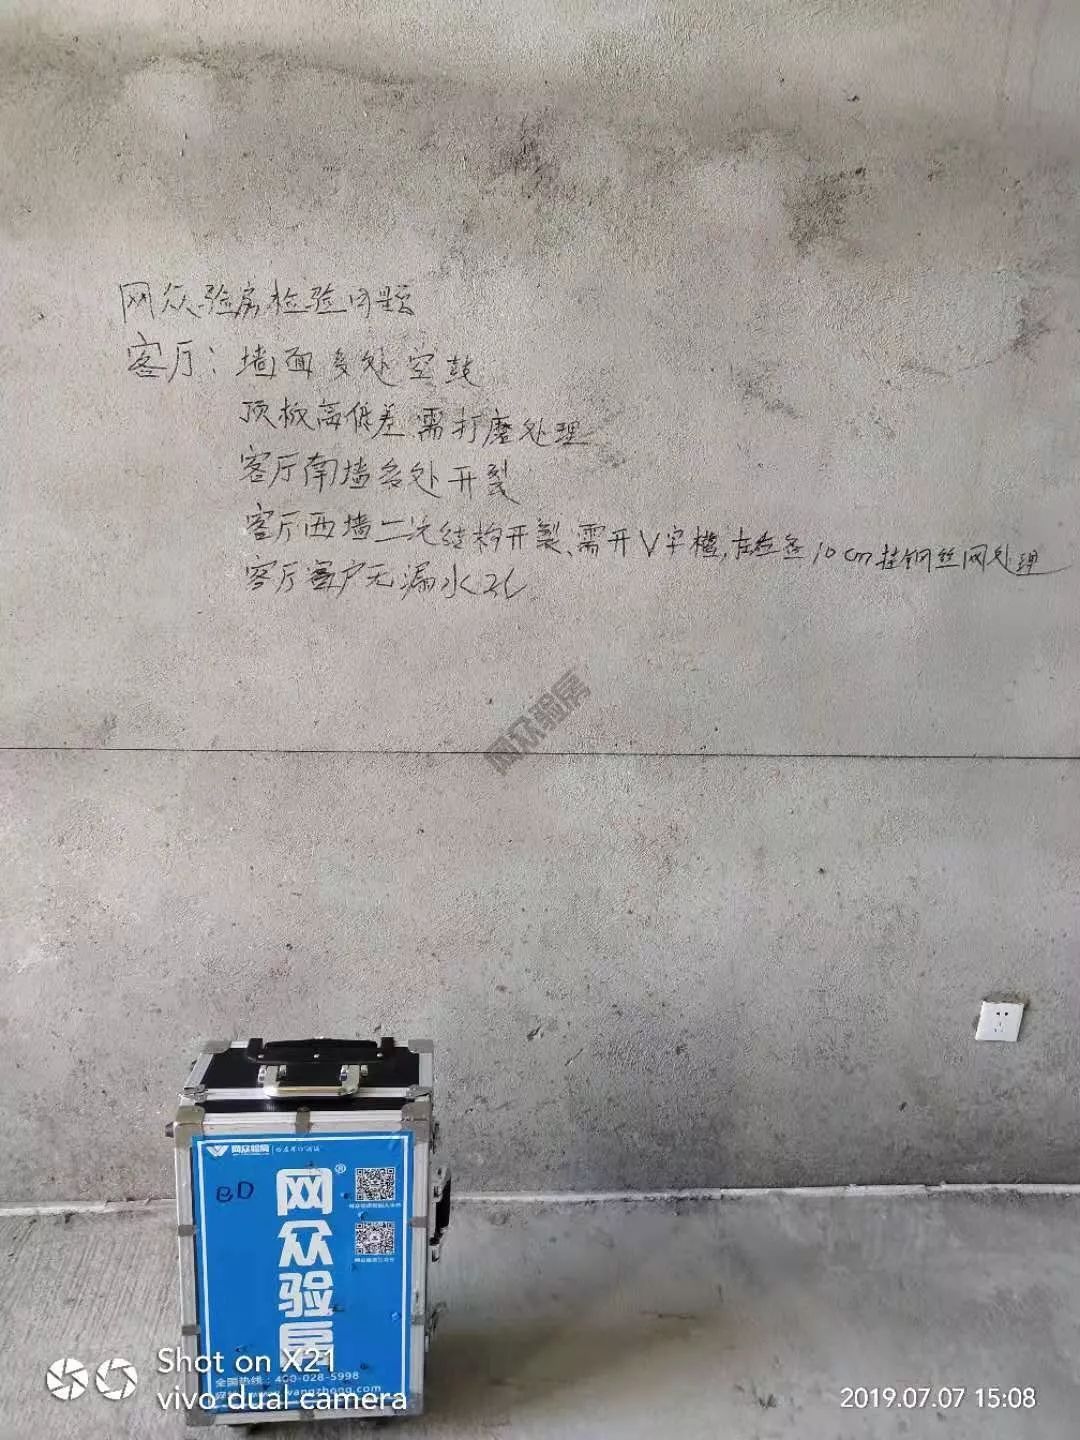 网众验房检验问题
客厅：墙面多处空鼓
顶板高低差需打磨处理
客厅南墙多处开裂
客厅西墙二次结构开裂、需开V字槽，左右各10cm挂钢丝网处理
客厅窗户无漏水孔
网众验房
网众验房
BD
网众验房®
全国热线：400-028-5998
Shot on X21
vivo dual camera
2019.07.07 15:08